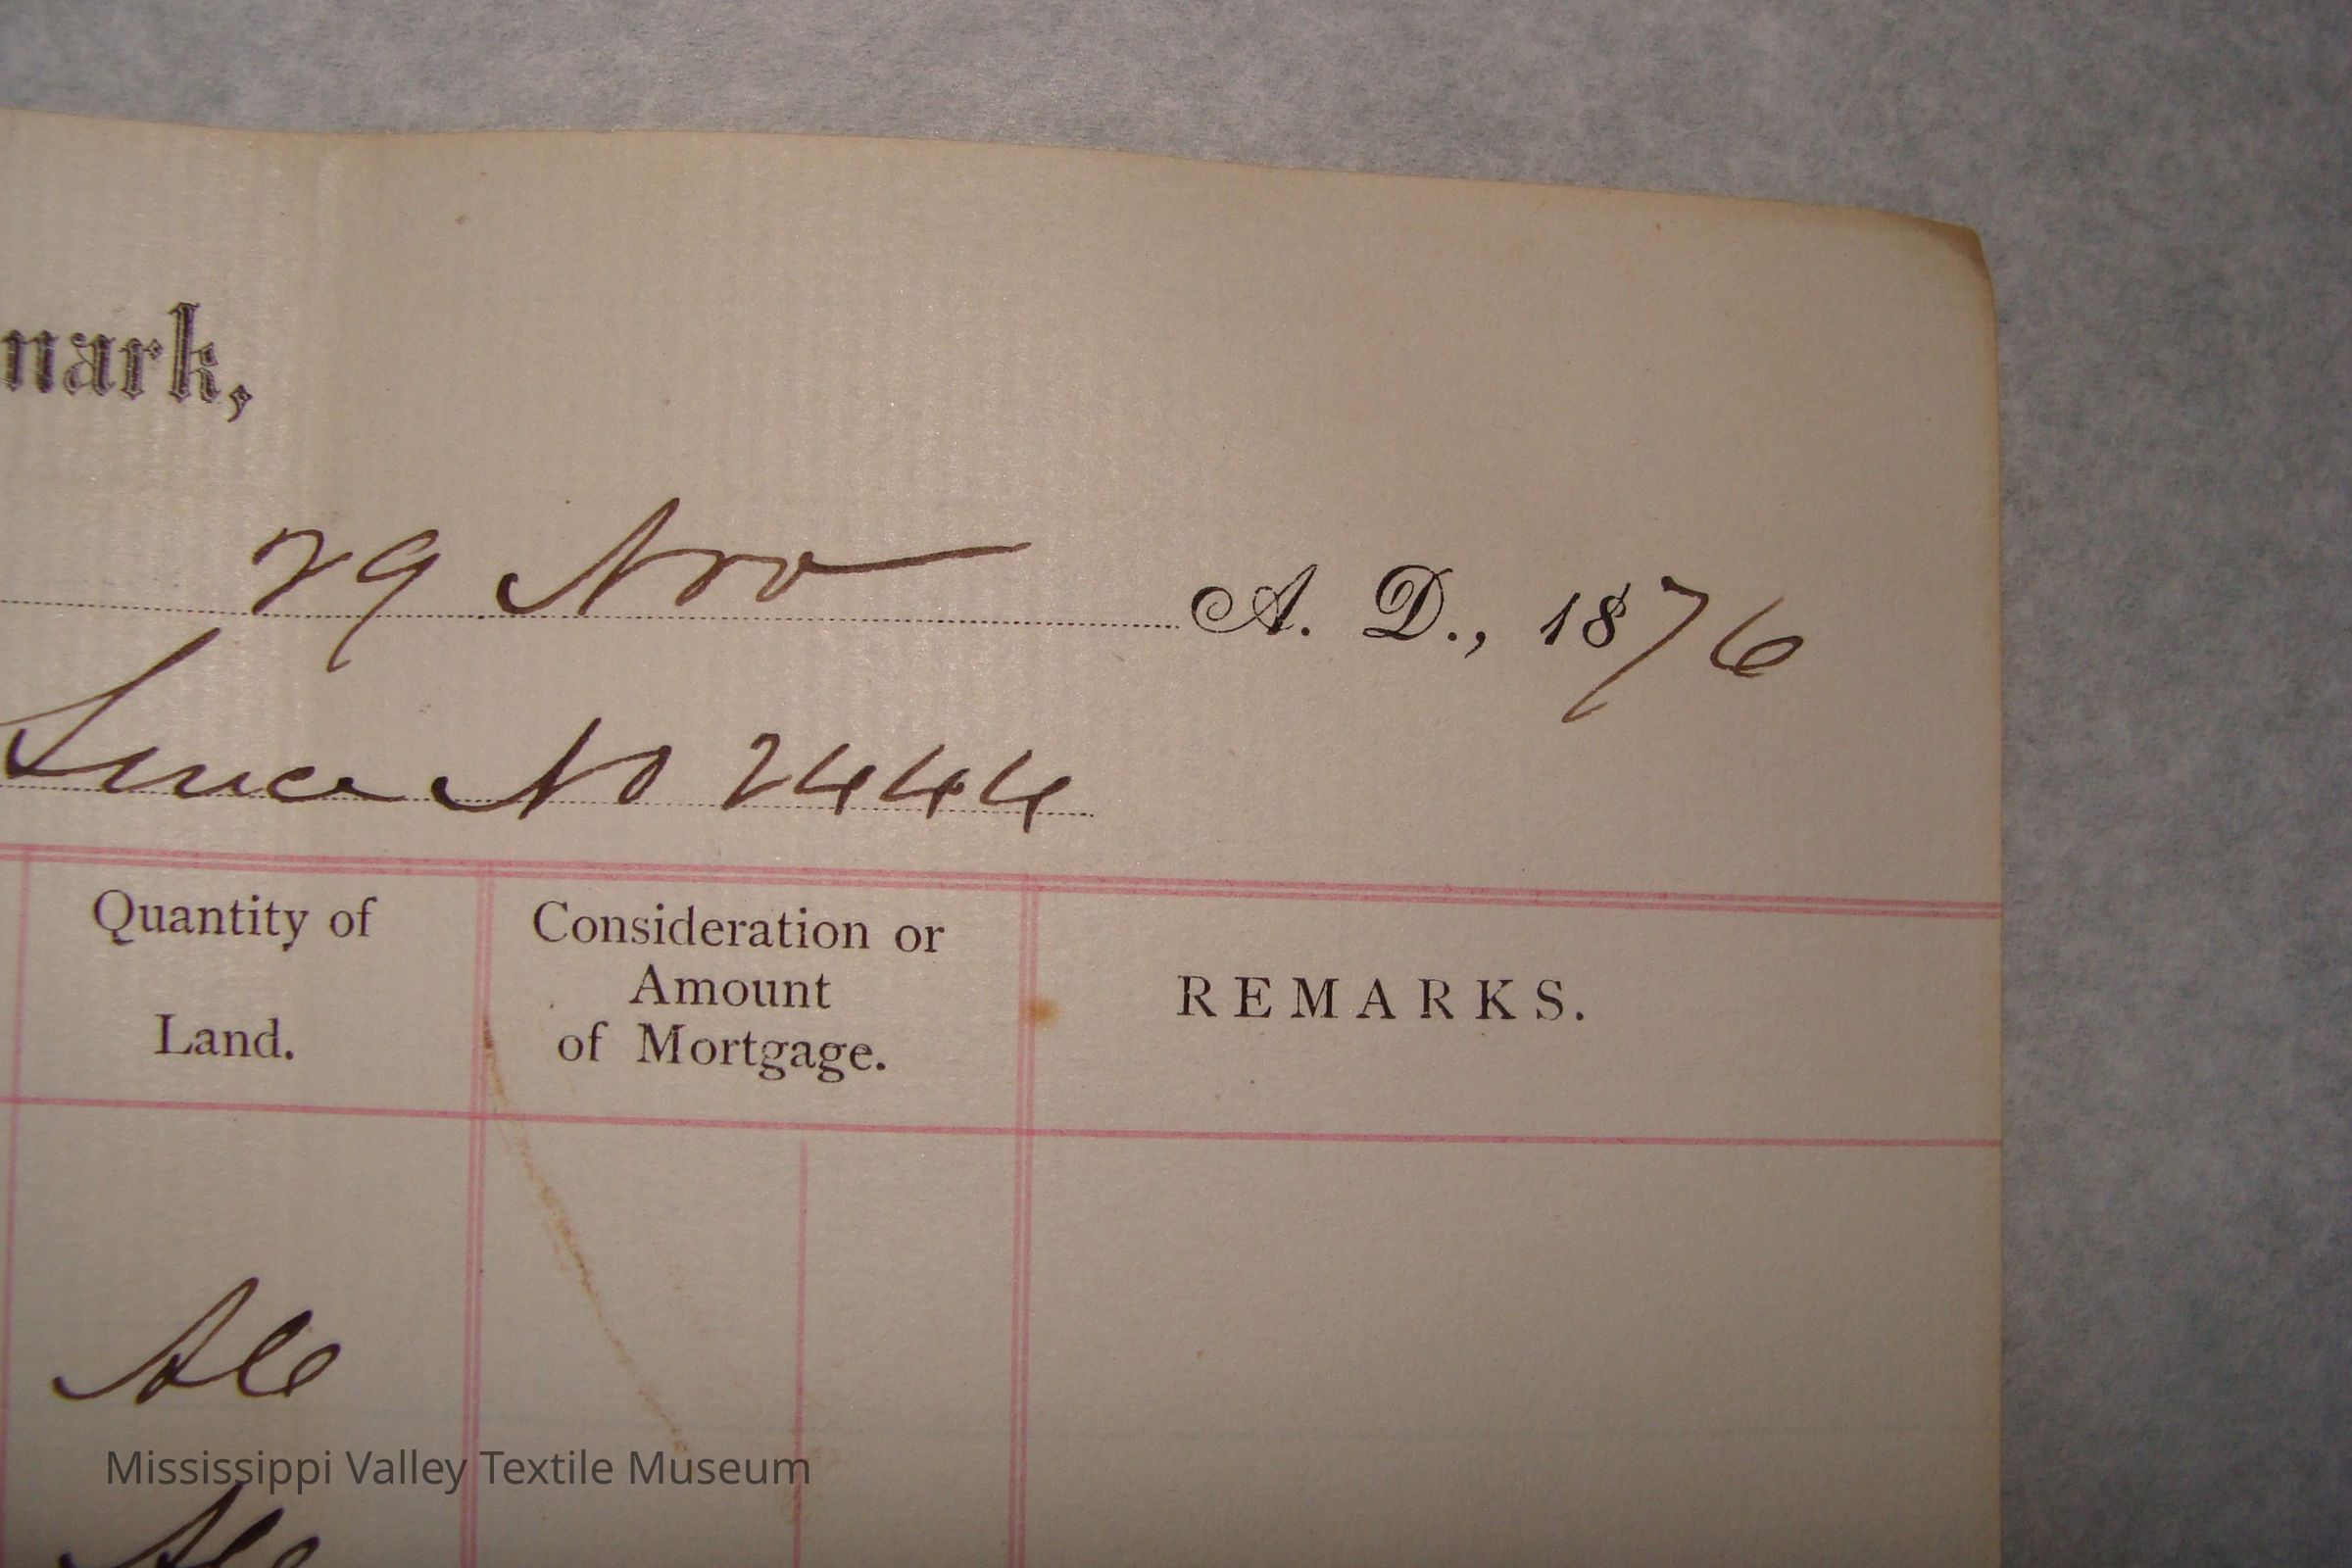 nark,
29 Nov A. D., 1876
Since No 2444
Quantity of
Land.
Consideration or
Amount
of Mortgage.
REMARKS.
All
All
Mississippi Valley Textile Museum